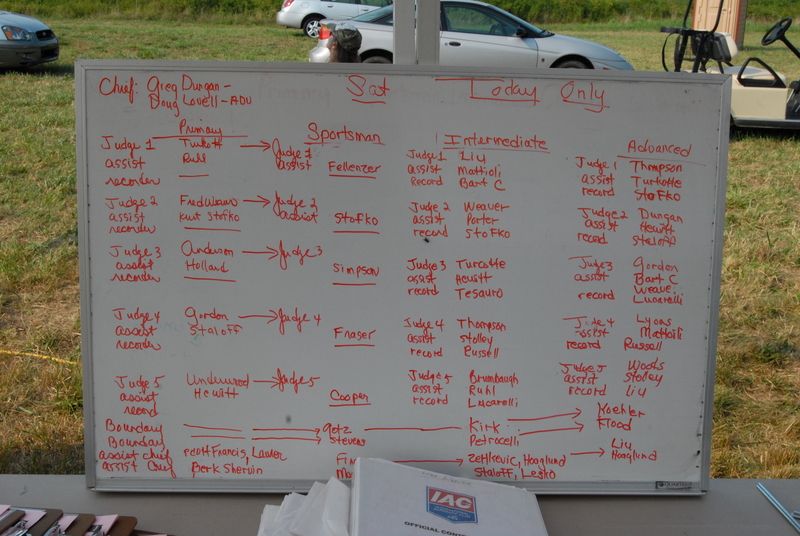 Chief: Greg Dungan - Sat Today Only
Doug Lovell - ADV
Primary Sportsman Intermediate Advanced
Judge 1 Turkott → Judge 1 Judge 1 Liu Judge 1 Thompson
assist Ruhl assist Fellenzer assist Mattioli assist Turkotte
recorder Record Bart C record Stofko
Judge 2 Fred Weaver → Judge 2 Judge 2 Weaver Judge 2 Dungan
assist Kurt Stofko assist Stofko assist Porter assist Hewitt
recorder record Stofko record Staloff
Judge 3 Anderson → Judge 3 Judge 3 Turcotte Judge 3 Gordon
assist Holland Simpson assist Hewitt assist Bart C
recorder record Tesauro Weaver
record Lucarelli
Judge 4 Gordon → Judge 4 Judge 4 Thompson Judge 4 Lyons
assist Staloff Fraser assist Stolley assist Mattioli
recorder record Bussell record Russell
Judge 5 Underwood → Judge 5 Judge 5 Brumbaugh Judge 5 Woods
assist Hewitt Cooper assist Ruhl assist Stolley
record record Lucarelli record Liu
Boundary Getz Kirk Koehler
Boundary Stevens Petrocelli Flood
assist chief Scott Francis, Lawler Zehkevic, Hoaglund → Liu Hoaglund
assist Chief Berk Sherwin Staloff, Lesko
IAC
OFFICIAL